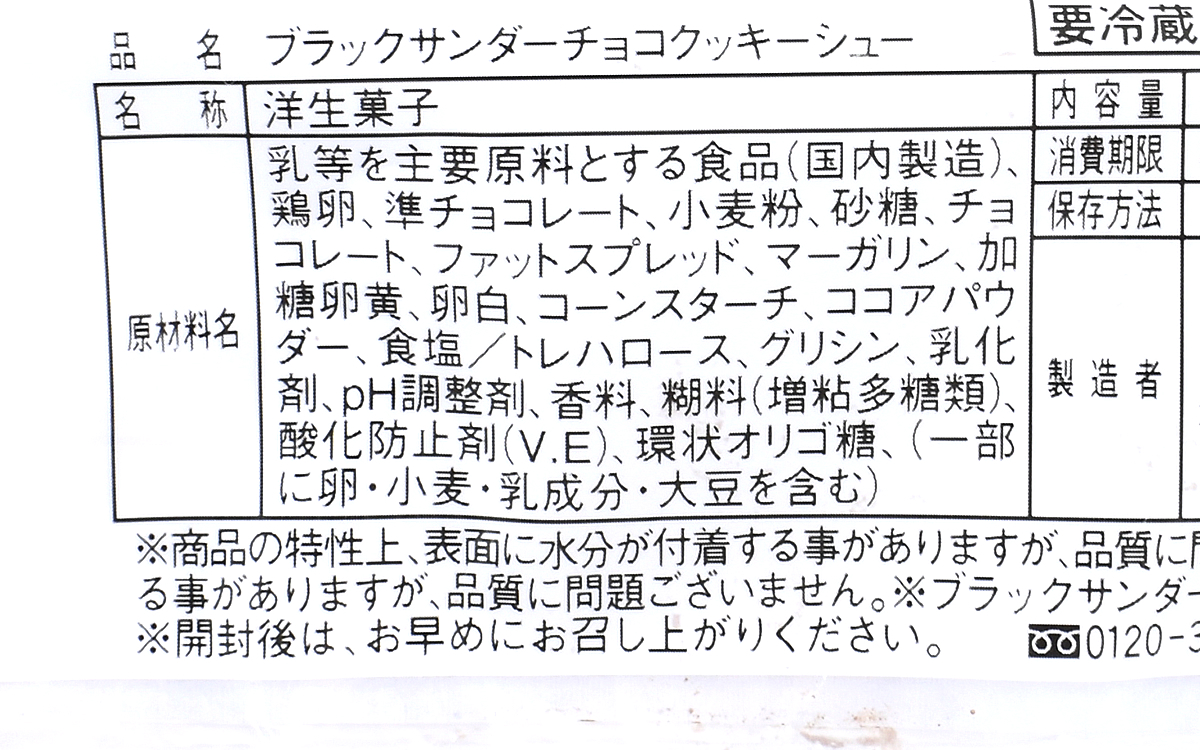 品名 ブラックサンダーチョコクッキーシュー
要冷蔵
名称 洋生菓子
内容量
消費期限
保存方法
製造者
原材料名
乳等を主要原料とする食品(国内製造)、
鶏卵、準チョコレート、小麦粉、砂糖、チョ
コレート、ファットスプレッド、マーガリン、加
糖卵黄、卵白、コーンスターチ、ココアパウ
ダー、食塩／トレハロース、グリシン、乳化
剤、pH調整剤、香料、糊料(増粘多糖類)、
酸化防止剤(V.E)、環状オリゴ糖、(一部
に卵・小麦・乳成分・大豆を含む)
※商品の特性上、表面に水分が付着する事がありますが、品質に
る事がありますが、品質に問題ございません。※ブラックサンダー
※開封後は、お早めにお召し上がりください。
0120-3